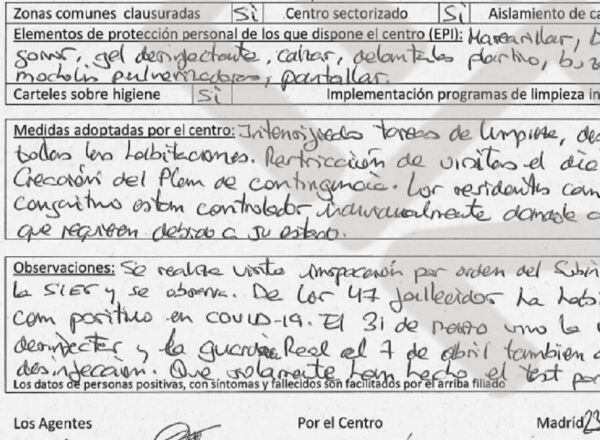 Zonas comunes clausuradas Sì Centro sectorizado Sì Aislamiento de ca
Elementos de protección personal de los que dispone el centro (EPI): Mascarillas,
gorros, gel desinfectante, calzas, delantales plastico, buzos
mochila pulverizadoras, pantallas.
Carteles sobre higiene Sì Implementación programas de limpieza in
Medidas adoptadas por el centro: Intensificado tareas de limpieza, des
todas las habitaciones. Restricción de visitas el dia
Creación del Plan de contingencia. Los residentes con
estan controlados individualmente dandole
que requieren debido a su estado.
Observaciones: Se realiza visita inspección por orden del Subin
la SIES y se observa. De los 47 fallecidos ha habi
com positivo en COVID-19. El 31 de marzo vino la
desinfectar y la guardia Real el 7 de abril tambien
desinfección. Que solamente han hecho el test por
Los datos de personas positivas, con síntomas y fallecidos son facilitados por el arriba filiado
Los Agentes Por el Centro Madrid 23